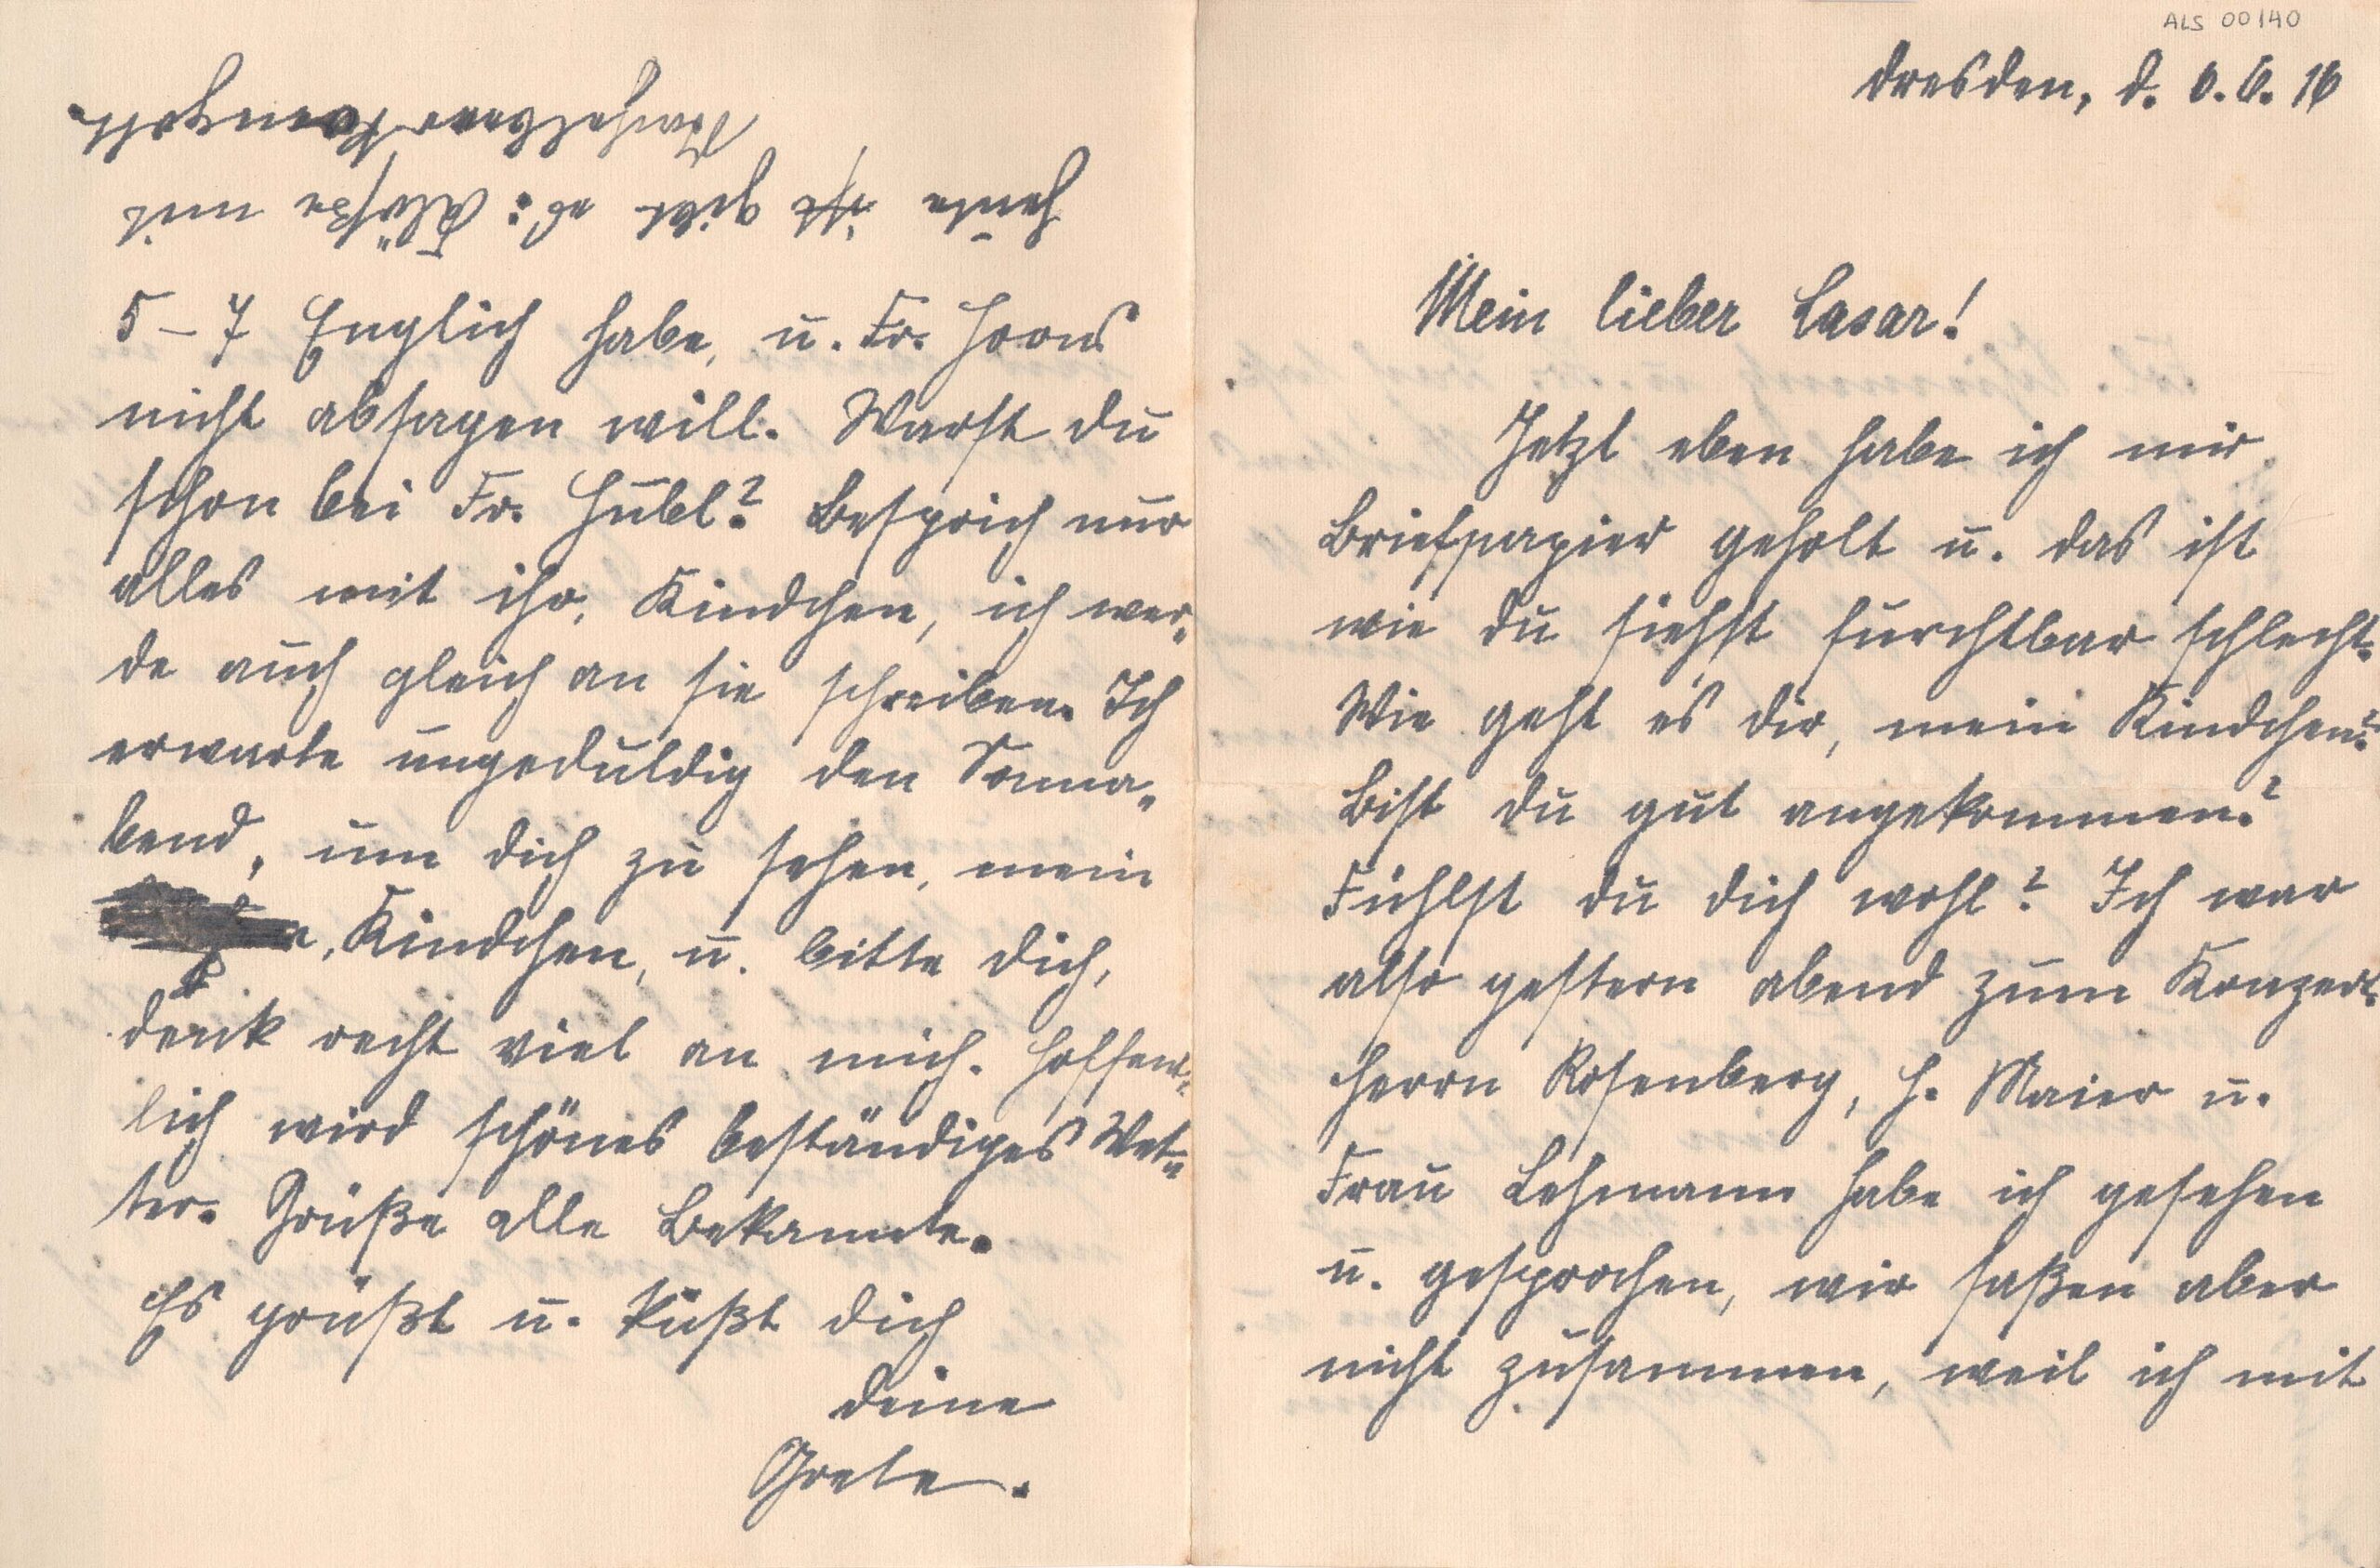 ALS 00140
Dresden, d. 6.6.16
Mein lieber Lasar!
Jetzt eben habe ich mir
Briefpapier geholt u. das ist
wie du siehst furchtbar schlecht.
Wie geht es dir, mein Kindchen?
Bist du gut angekommen?
Fühlst du dich wohl? Ich war
also gestern abend zum Konzert.
Herrn Rosenberg, H. Maier u.
Frau Lehmann habe ich gesehen
u. gesprochen, wir saßen aber
nicht zusammen, weil ich mit
5–7 Englich habe, u. Fr.
nicht absagen will. Warst du
schon bei Fr. Hubl? Besprich nur
alles mit ihr, Kindchen, ich wer-
de auch gleich an sie schreiben. Ich
erwarte ungeduldig den Sonna-
bend, um dich zu sehen, mein
Kindchen, u. bitte dich,
denk recht viel an mich. Hoffent-
lich wird schönes beständiges Wet-
ter. Grüße alle Bekannte.
Es grüßt u. küßt dich
deine
Grete.
Heute ist gibt es: Klöße mit
Stachelbeer Kompott.